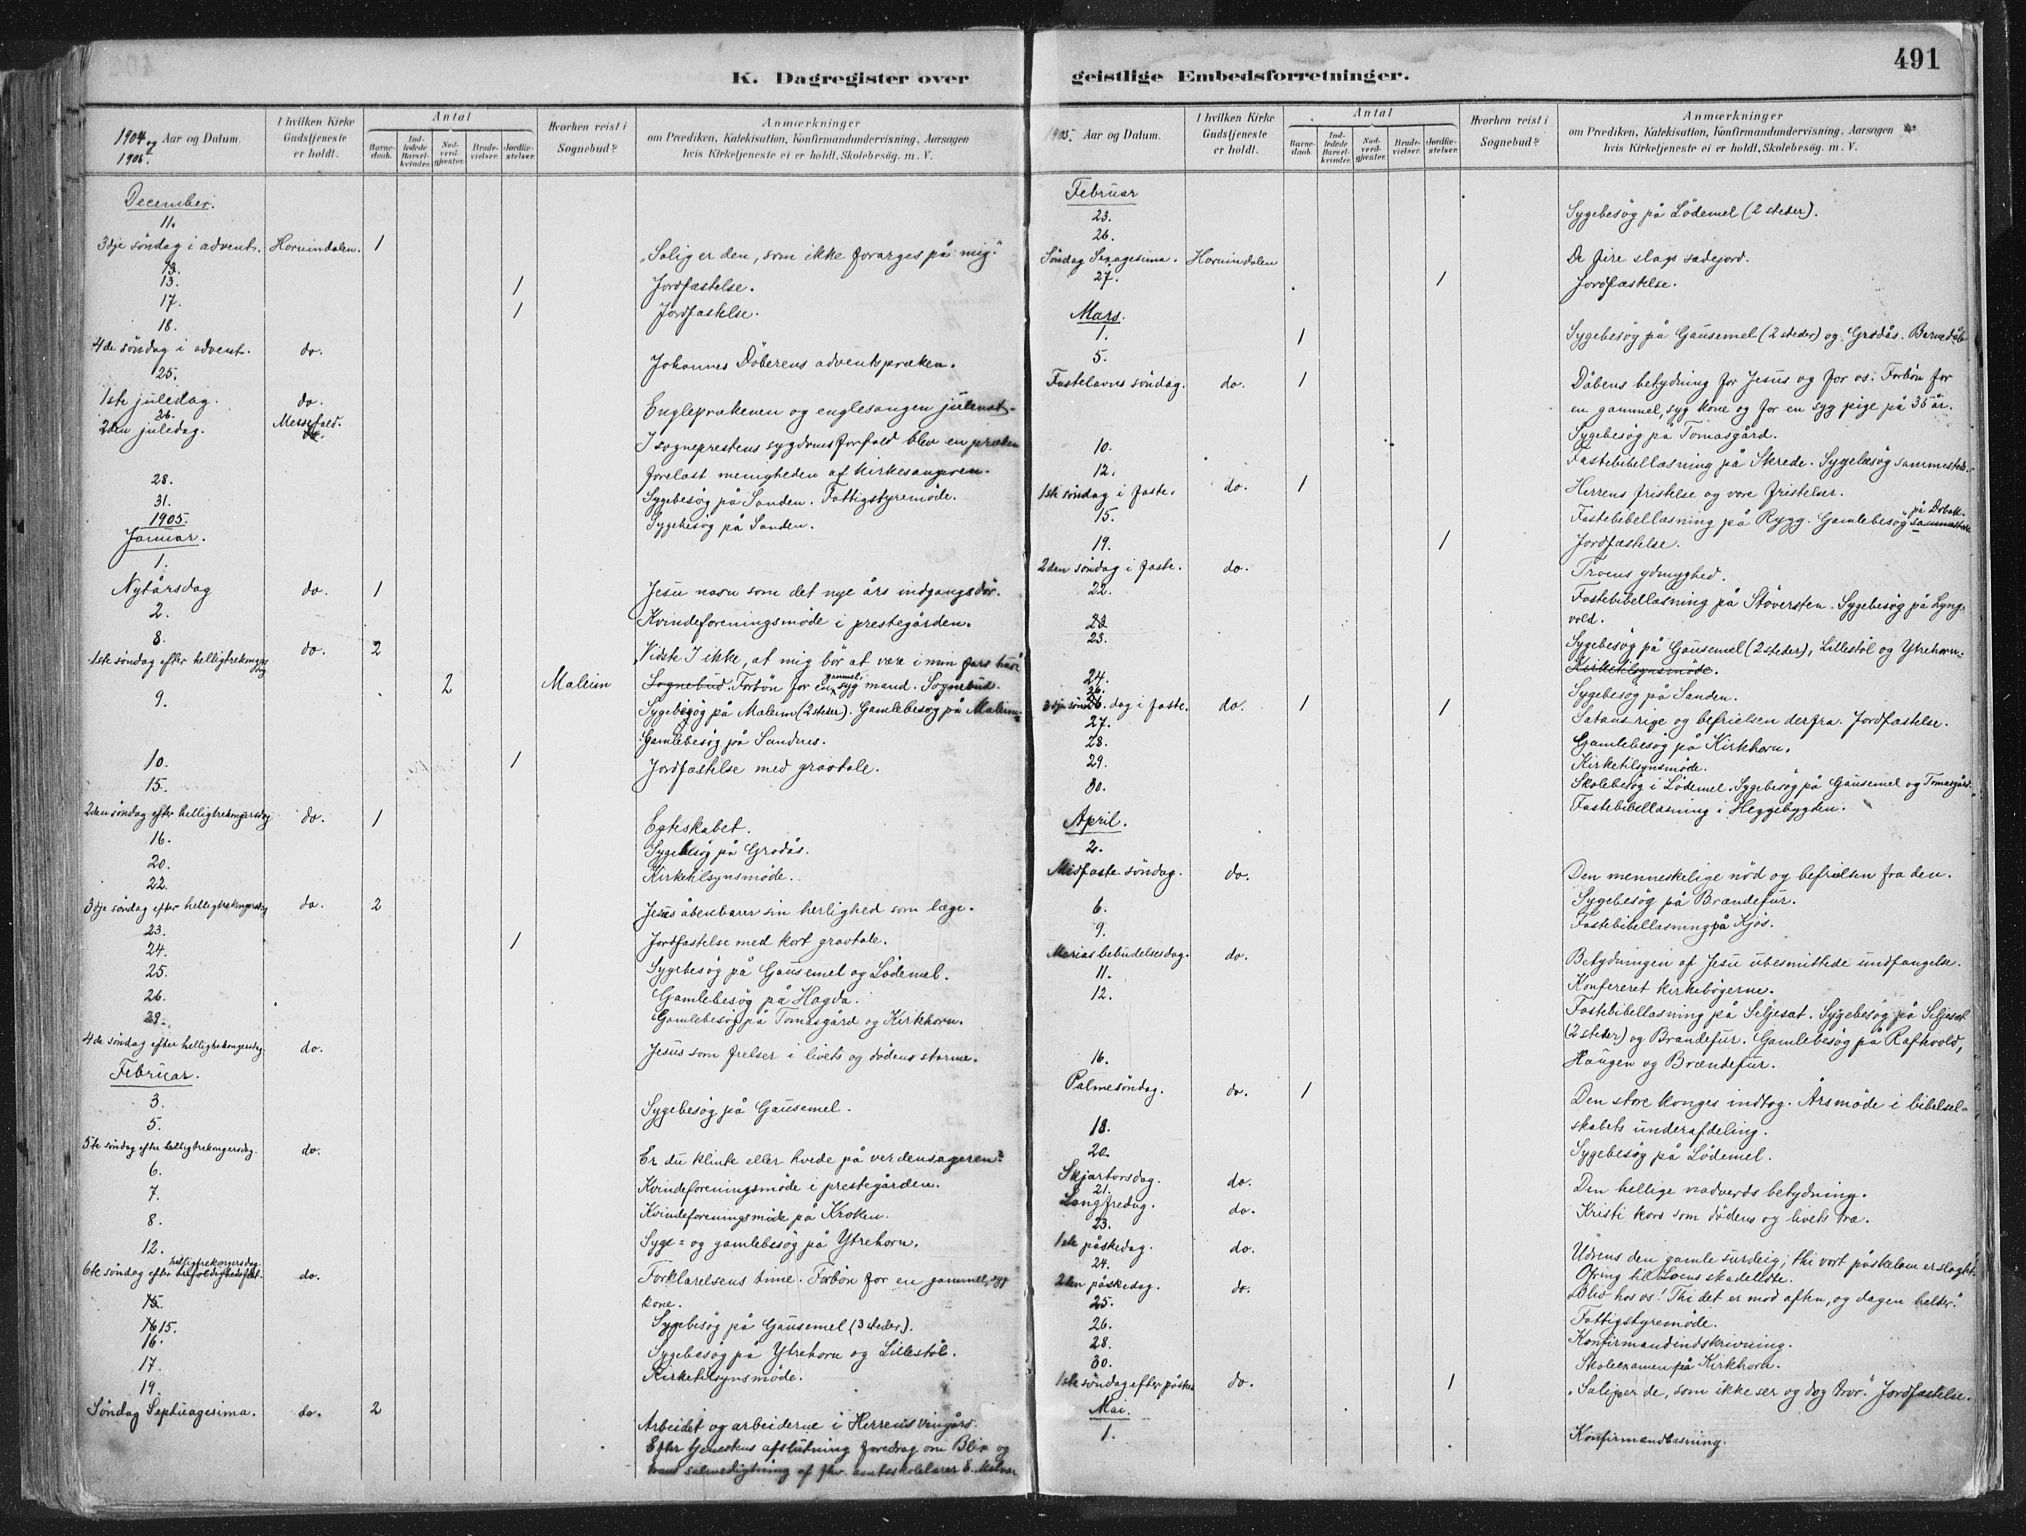 K. Dagregister over
1904 og 1905. Aar og Datum.
I hvilken Kirke Gudstjeneste er holdt.
Antal
Barnedaab.
Indledede Barselkvinder.
Nadverdgjæster.
Brudevielser.
Jordfæstelser.
Hvorhen reist i Sognebud?
Anmærkninger
om Prædiken, Katekisation, Konfirmandundervisning, Aarsagen
hvis Kirketjeneste ei er holdt, Skolebesøg m. V.
December.
11.
3dje søndag i advent. Hornindalen. 1 „Salig er den, som ikke forarges på mig."
13.
13. 1 Jordfæstelse.
17. 1 Jordfæstelse.
18.
4de søndag i advent. do. Johannes Døberens adventspræken.
25.
1ste juledag. do. Engleprækenen og englesangen julenat.
26.
2den juledag. Messefald. I sogneprestens sygdoms forfald blev en præken
forelæst menigheden af kirkesangeren.
28. Sygebesøg på Sanden. Fattigstyremøde.
31. Sygebesøg på Sanden.
1905.
Januar.
1.
Nytårsdag do. 1 Jesu navn som det nye års indgangsdør.
2. Kvindeforeningsmøde i prestegården.
8.
1ste søndag efter helligtrekongersdag do. 2 Vidste I ikke, at mig bør at være i min fars hus?
2 Maleim Sognebud. Forbøn for en gammel, syg mand. Sognebud.
9. Sygebesøg på Maleim (2 steder). Gamlebesøg på Maleim.
Gamlebesøg på Sandnes.
10. 1 Jordfæstelse med gravtale.
15.
2den søndag efter helligtrekongersdag do. 1 Egteskabet.
16. Sygebesøg på Grodås.
20. Kirketilsynsmøde.
22.
3dje søndag efter helligtrekongersdag do. 2 Jesus åbenbarer sin herlighed som læge.
23. 1 Jordfæstelse med kort gravtale.
24. Sygebesøg på Gausemel og Lødemel.
25. Gamlebesøg på Hagda.
26. Gamlebesøg på Tomasgård og Kirkhorn.
29.
4de søndag efter helligtrekongersdag. do. Jesus som frelser i livets og dødens storme.
Februar.
3. Sygebesøg på Gausemel.
5.
5te søndag efter helligtrekongersdag. do. Er du klinte eller hvede på verdensageren?
6. Kvindeforeningsmøde i prestegården.
7. Kvindeforeningsmøde på Kroken.
8. Syge- og gamlebesøg på Ytrehorn.
12.
6te søndag efter helligtrekongersdag. do. Forklarelsens time. Forbøn for en gammel, syg
kone.
15. Sygebesøg på Gausemel (3 steder).
16. Sygebesøg på Ytrehorn og Lillestøl.
17. Kirketilsynsmøde.
19.
Søndag Septuagesima. do. 2 Arbeidet og arbeiderne i Herrens vingård.
Efter tjenestens afslutning foredrag om Blix og
hans salmedigtning af fhv. amtsskolelærer
491
geistlige Embedsforretninger.
1905. Aar og Datum.
I hvilken Kirke Gudstjeneste er holdt.
Antal
Barnedaab.
Indledede Barselkvinder.
Nadverdgjæster.
Brudevielser.
Jordfæstelser.
Hvorhen reist i Sognebud?
Anmærkninger
om Prædiken, Katekisation, Konfirmandundervisning, Aarsagen
hvis Kirketjeneste ei er holdt, Skolebesøg m. V.
Februar
23. Sygebesøg på Lødemel (2 steder).
26.
Søndag Sexagesima. Hornindalen De fire slags sædejord.
27. 1 Jordfæstelse.
Mars.
1. 1 Sygebesøg på Gausemel (2 steder) og Grodås. Barnedåb
5.
Fastelavns søndag. do. 1 Dåbens betydning for Jesus og for os. Forbøn for
en gammel, syg kone og for en syg pige på 35 år.
Sygebesøg på Tomasgård.
10. Fastebibellæsning på Skrede. Sygebesøg sammesteds.
12.
1ste søndag i faste. do. 1 Herrens fristelse og vore fristelser.
15. Fastebibellæsning på Rygg. Gamlebesøg sammesteds.
19. 1 Jordfæstelse.
2den søndag i faste. do. Troens ydmyghed.
22. Fastebibellæsning på Støversten. Sygebesøg på Lyng-
vold.
23. Sygebesøg på Gausemel (2 steder), Lillestøl og Ytrehorn.
Kirketilsynsmøde.
24. Sygebesøg på Sanden.
26.
3dje søndag i faste. do. 1 1 Satans rige og befrielsen derfra. Jordfæstelse.
27. Gamlebesøg på Kirkhorn.
28. Kirketilsynsmøde.
29. Skolebesøg i Lødemel. Sygebesøg på Gausemel og Tomasgård.
30. Fastebibellæsning i Heggebygden.
April.
2.
Midfaste søndag. do. Den menneskelige nød og befrielsen fra den.
6. Sygebesøg på Brændefur.
9. Fastebibellæsning på Kjøs.
Marias bebudelsesdag. do. Betydningen af Jesu ubesmittede undfangelse.
11. Konfereret kirkebøgerne.
12. Fastebibellæsning på Seljeset. Sygebesøg på Seljeset
(2 steder) og Brændefur. Gamlebesøg på Raftevold,
Haugen og Brændefur.
16.
Palmesøndag. do. 1 Den store konges indtog. Årsmøde i bibelsel-
skabets underafdeling.
18. Sygebesøg på Lødemel.
20.
Skjærtorsdag. do. Den hellige nadverds betydning.
21.
Langfredag. do. Kristi kors som dødens og livets træ.
23.
1ste påskedag. do. Udrens den gamle surdeig; thi vort påskelam er slagtet.
Ofring til Loens skadelidte.
24.
2den påskedag. do. „Bliv hos os! Thi det er mod aften, og dagen helder."
25. Fattigstyremøde.
26. Konfirmandindskrivning.
28. Skoleexamen på Kirkhorn.
30.
1ste søndag efter påske do. 1 „Salige er de, som ikke ser og dog tror." Jordfæstelse.
Mai.
1. Konfirmandlæsning.